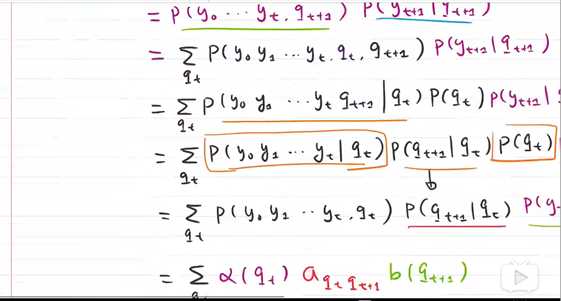 = P(y₀ ··· y_t, q_{t+1}) P(y_{t+1} | q_{t+1})
= Σ_{q_t} P(y₀ y₁ ··· y_t, q_t, q_{t+1}) P(y_{t+1} | q_{t+1})
= Σ_{q_t} P(y₀ y₁ ··· y_t q_{t+1} | q_t) P(q_t) P(y_{t+1} |
= Σ_{q_t} P(y₀ y₁ ··· y_t | q_t) P(q_{t+1} | q_t) P(q_t)
= Σ_{q_t} P(y₀ y₁ ·· y_t, q_t) P(q_{t+1} | q_t) P(y
= Σ α(q_t) a_{q_t q_{t+1}} b(q_{t+1})